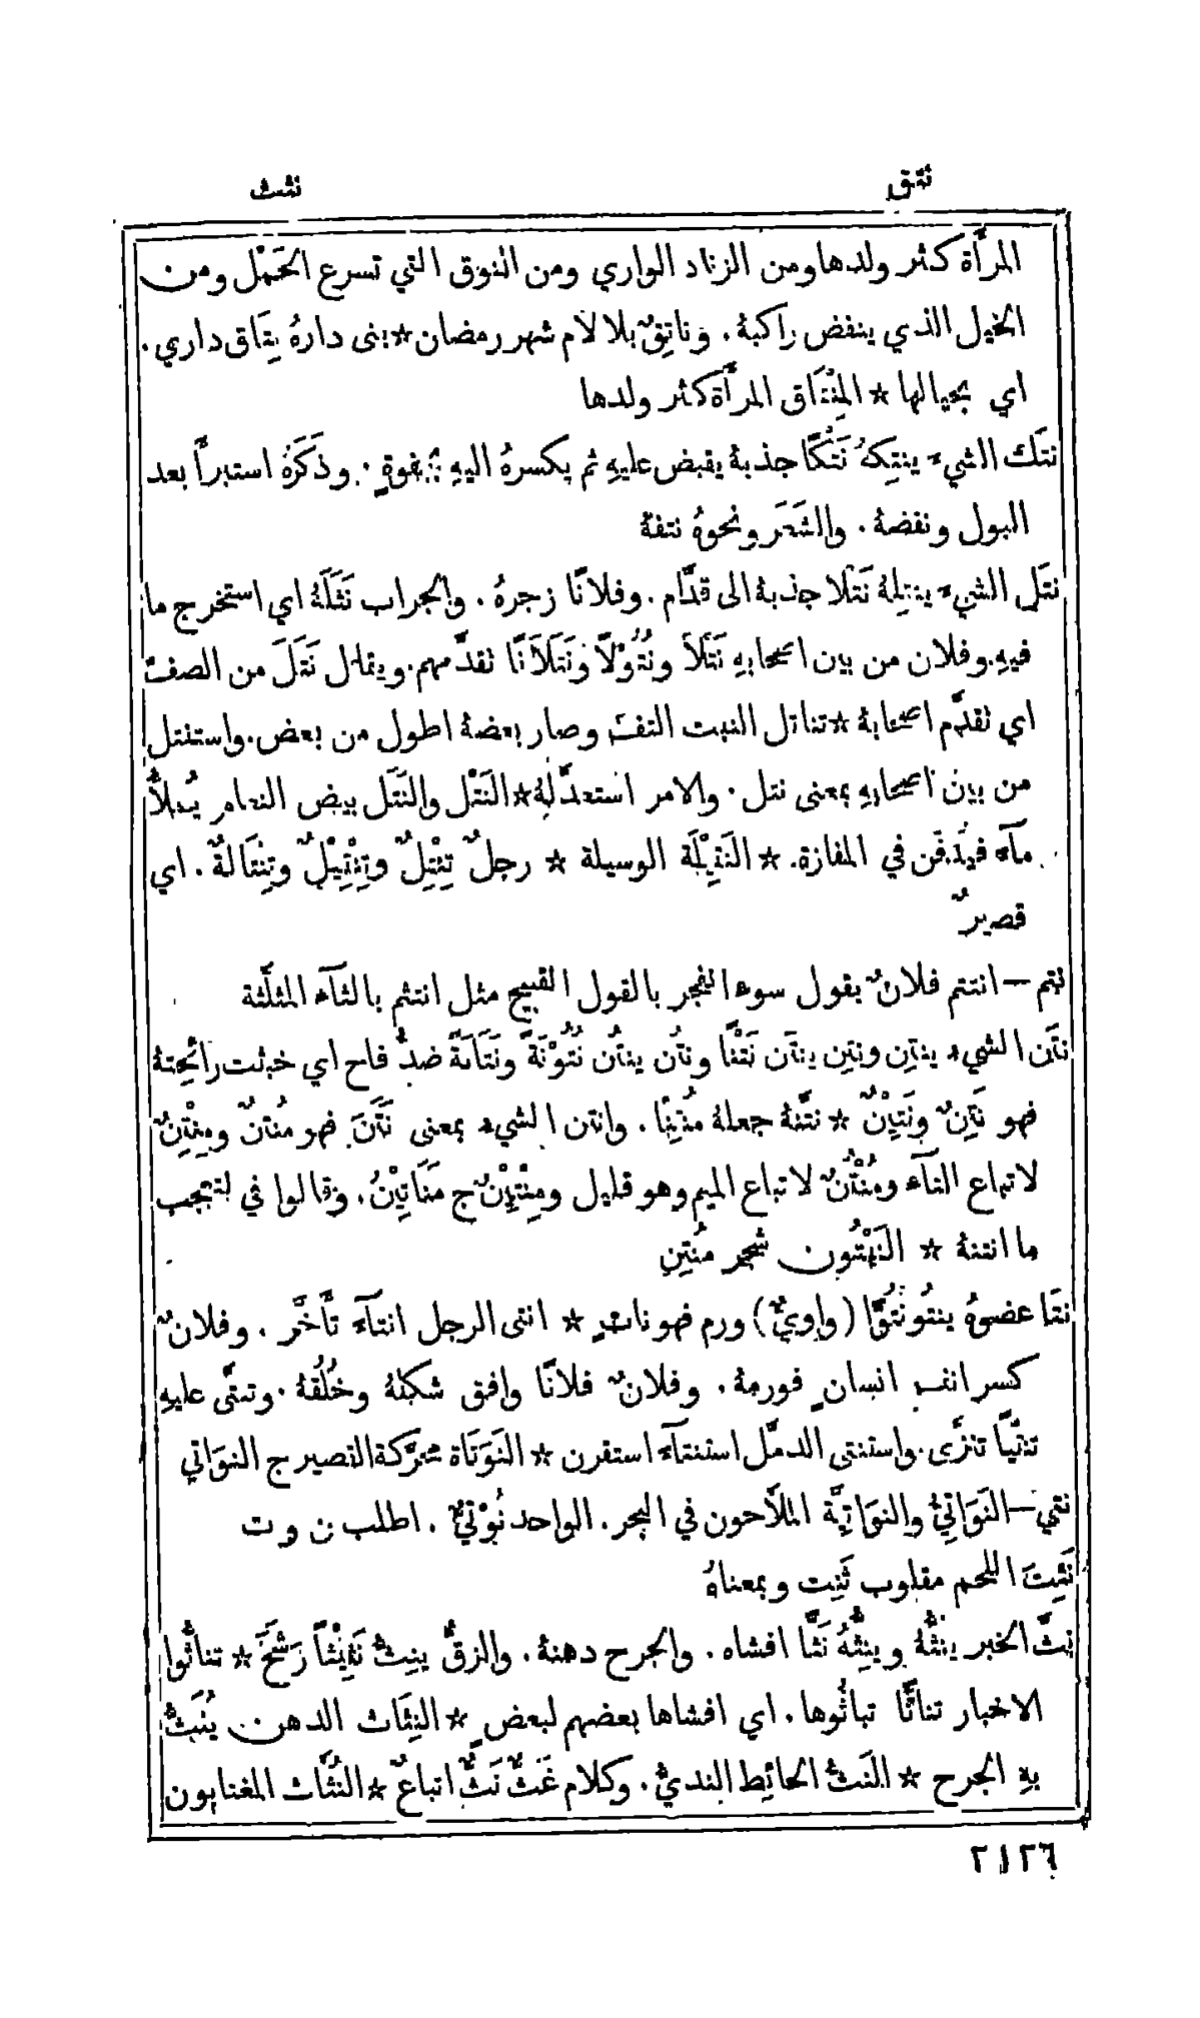 نتق
نثث
المرأة كثر ولدها ومن الزناد الواري ومن النوق التي تسرع الحَمْل ومن
الخيل الذي ينفض راكبهُ. وناتِقٌ بلا لام شهر رمضان * بنى دارهُ نِتَاق داري.
اي بحيالها * المِنْتَاق المرأة كثر ولدها
نتَك الشيء ينتِكهُ نَتْكًا جذبهُ يقبض عليهِ ثم يكسرهُ اليهِ بجفوةٍ. وذَكَرَهُ استبرأ بعد
البول ونفضهُ. والشَعَر ونحوهُ نتفهُ
نتَل الشيء ينتِلهُ نَتْلًا جذبهُ الى قدَّام. وفلانًا زجرهُ. والجراب نَثَلَهُ اي استخرج ما
فيهِ. وفلان من بين اصحابهِ نَتْلًا ونُتُوْلًا ونَتَلَانًا تقدَّمهم. ويقال نَتَلَ من الصفّ
اي تقدَّم اصحابهُ * تناتل النبت التفَّ وصار بعضهُ اطول من بعض. واستنتل
من بين اصحابهِ بمعنى نتل. والامر استعدَّ لهُ * النَتْل والنَتَل بيض النعام يُملأُ
مآء فيُدفَن في المفازة. * النَتِيْلَة الوسيلة * رجلٌ تِنْتِلٌ وتِنْتِيْلٌ وتِنْتَالةٌ. اي
قصيرٌ
نتم — انتتم فلانٌ بقول سوء انفجر بالقول القبيح مثل انتثم بالثآء المثلَّثة
نتَن الشيء ينتِن ونتِن ينتَن نَتْنًا ونتُن ينتُن نُتُوْنَةً ونَتَانَةً ضدُّ فاح اي خبثت رائحتهُ
فهو نَتِنٌ ونَتِيْنٌ * نتَّنهُ جعلهُ مُنتِنًا. وانتن الشيء بمعنى نَتَنَ فهو مُنتنٌ ومِنْتِنٌ
لاتباع التآء ومُنْتُنٌ لاتباع الميم وهو قليل ومِنْتِيْنٌ ج مَنَاتِيْنُ. وقالوا في التعجب
ما انتنهُ * النَيْتُون شجر مُنتِنٌ
نتَا عضوهُ ينتُو نُتُوًّا (واويٌّ) ورم فهو ناتٍ * انتى الرجل انتآء تأخَّر. وفلانٌ
كسر انف انسانٍ فورمهُ. وفلانٌ فلانًا وافق شكلهُ وخُلُقهُ. وتنتَّى عليهِ
تنتِّيًا تنزَّى. واستنتى الدمَّل استنتآء استقرن * النَوَتَاة محرَّكة القصير ج النوَاتي
نتي — النَوَاتِيُّ والنوَاتِيَّة الملَّاحون في البحر. الواحد نُوْتِيٌّ. اطلب ن و ت
نَثِتَ اللحم مقلوب ثَنِت وبمعناهُ
نثَّ الخبر ينُثُّهُ وينِثُّهُ نَثًّا افشاه. والجرح دهنهُ. والزقُّ ينِثُّ نَثِيْثًا رَشَحَ * تناثُّوا
الاخبار تناثًّا تباثُّوها. اي افشاها بعضهم لبعضٍ * النِثَاث الدهن يُنَثُّ
بهِ الجرح * النَثُّ الحائط النديُّ. وكلام غَثٌّ نَثٌّ اتباعٌ * النُثَّاث المغتابون
٢١٢٦